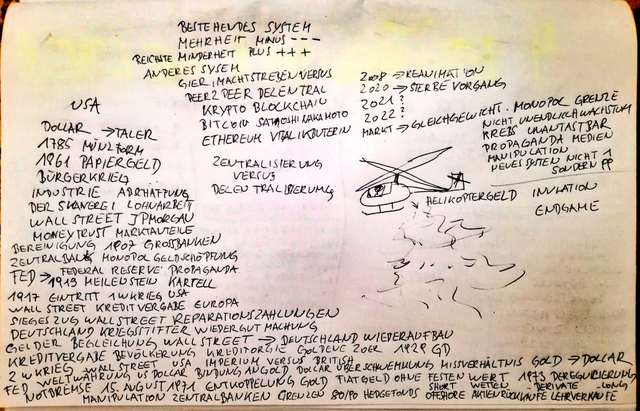 BESTEHENDES SYSTEM
MEHRHEIT MINUS - - -
REICHSTE MINDERHEIT PLUS + + +
ANDERES SYSEM
GIER, MACHTSTREBEN VERSUS
PEER 2 PEER DELENTRAL
KRYPTO BLOCKCHAIN
BITCOIN SATOSHI NAKAMOTO
ETHEREUM VITALIK BUTERIN
ZENTRALISIERUNG
VERSUS
DELENTRALISIERUNG
2008 → REANIMATION
2020 → STERBE VORGANG
2021?
2022?
MARKT → GLEICHGEWICHT. MONOPOL GRENZE
NICHT UNENDLICH WACHSTUM
KREBS UNANTASTBAR
PROPAGANDA MEDIEN
MANIPULATION
NEUES SYSTEM NICHT 1
SONDERN PP
HELIKOPTERGELD
ENDGAME
USA
DOLLAR → TALER
1785 MÜNZFORM
1861 PAPIERGELD
BÜRGERKRIEG
INDUSTRIE
DER SKLAVEREI LOHNARBEIT
WALL STREET JPMORGAN
MONEYTRUST MARKTAUTEILE
BEREINIGUNG 1907 GROSSBANKEN
ZENTRALBANK MONOPOL GELDSCHÖPFUNG
FEDERAL RESERVE PROPAGANDA
FED → 1913 MEILENSTEIN KARTELL
1917 EINTRITT 1 WKRIEG USA
WALL STREET KREDITVERGABE EUROPA
SIEGESZUG WALL STREET REPARATIONSZAHLUNGEN
DEUTSCHLAND KRIEGSTIFTER WIEDERGUTMACHUNG
GELDER BEGLEICHUNG WALL STREET → DEUTSCHLAND WIEDERAUFBAU
KREDITVERGABE BEVÖLKERUNG KREDITORGIE GOLDENE 20ER 1929 GD
2 WKRIEG WALL STREET USA IMPERIUM VERSUS BRITISH
WELTWÄHRUNG US DOLLAR BINDUNG AN GOLD DOLLAR ÜBERSCHWEMMUNG MISSVERHÄLTNIS GOLD → DOLLAR
FED NOTBREMSE 15. AUGUST 1971 ENTKOPPELUNG GOLD FIATGELD OHNE FESTEN WERT 1973 DEREGULIERUNG
SHORT WETTEN - DERIVATE - LONG
MANIPULATION ZENTRALBANKEN GRENZEN 80/90 HEDGEFONDS OFFSHORE AKTIENRÜCKKÄUFE LEHRVERKÄUFE